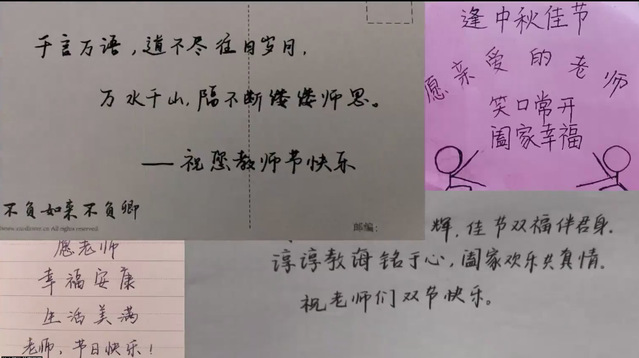 千言万语，道不尽往日岁月，
万水千山，隔不断缕缕师恩。
——祝您教师节快乐
不负如来不负卿
All rights reserved.
邮编:
逢中秋佳节
愿亲爱的老师
笑口常开
阖家幸福
愿老师
幸福安康
生活美满
老师，节日快乐！
辉，佳节双福伴君身。
谆谆教诲铭于心，阖家欢乐共真情。
祝老师们双节快乐。